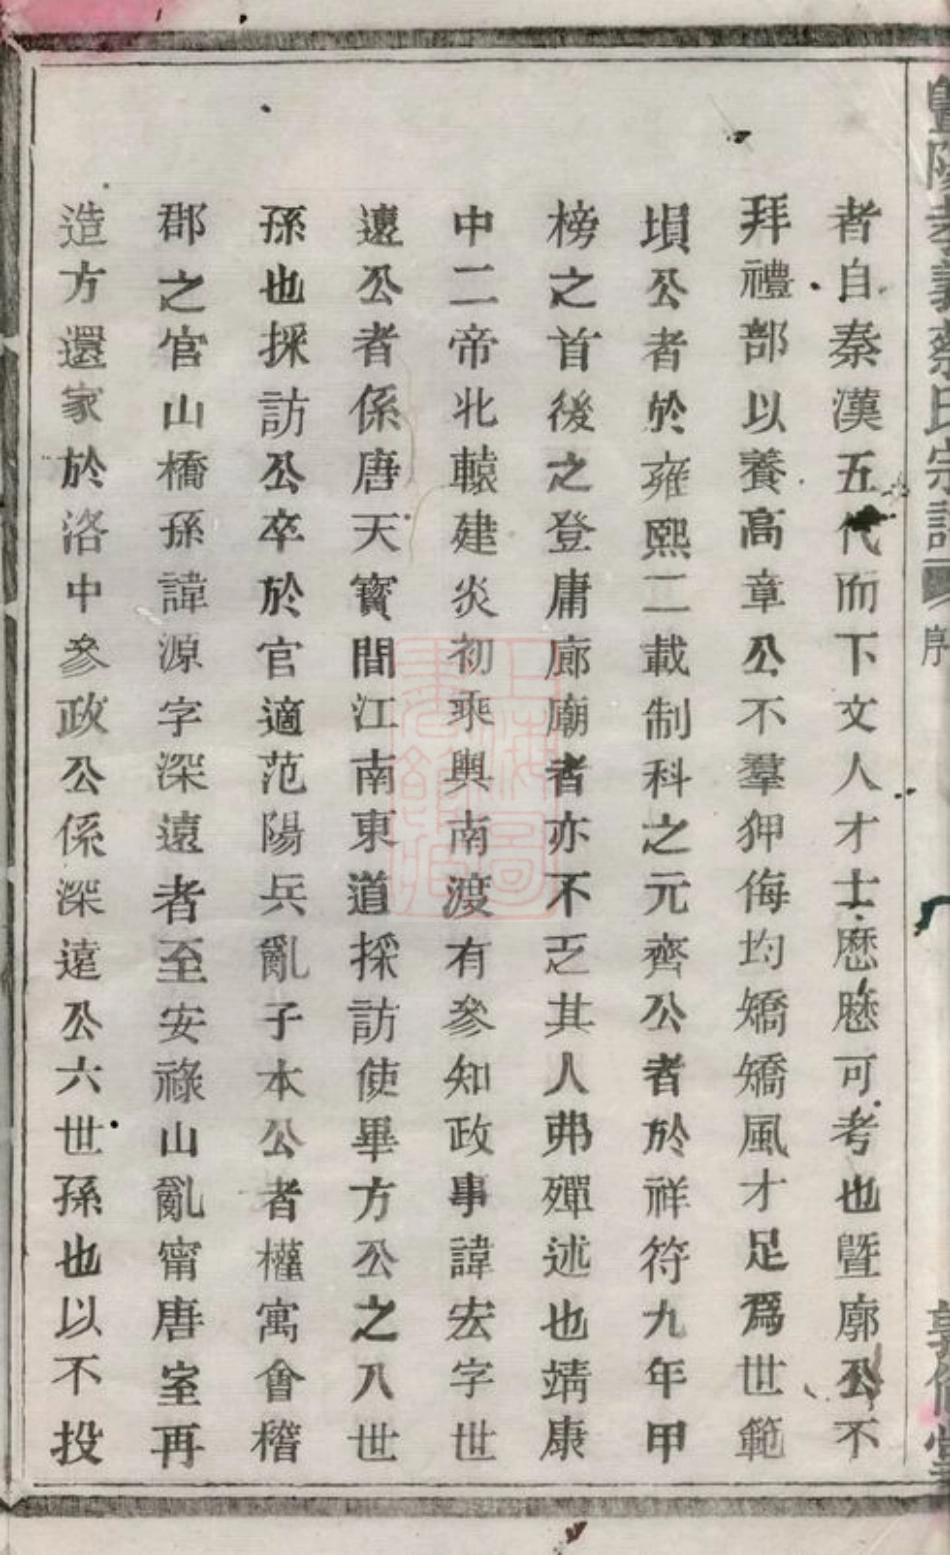 暨陽孝義蔡氏宗譜 序
者自秦漢五代而下文人才士歷歷可考也暨廓公不
拜禮部以養高章公不羣狎侮均矯矯風才足爲世範
塤公者於雍熙二載制科之元齊公者於祥符九年甲
榜之首後之登庸廊廟者亦不乏其人弗殫述也靖康
中二帝北轅建炎初乘輿南渡有參知政事諱宏字世
遠公者係唐天寶間江南東道採訪使畢方公之八世
孫也採訪公卒於官適范陽兵亂子本公者權寓會稽
郡之官山橋孫諱源字深遠者至安祿山亂甯唐室再
造方還家於洛中參政公係深遠公六世孫也以不投
上海圖書館藏